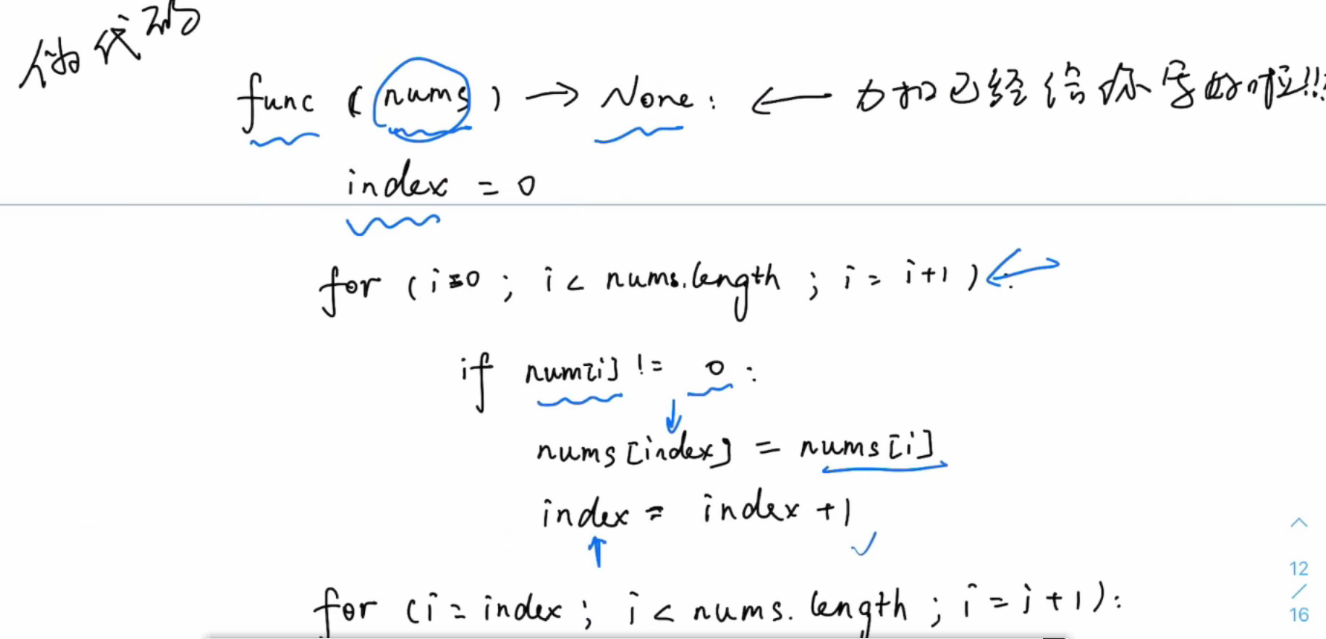 伪代码
func (nums) → None: ← 力扣已经给你写好啦!!!
index = 0
for (i=0 ; i < nums.length ; i = i+1)
if num[i] != 0 :
nums[index] = nums[i]
index = index +1
for (i = index ; i < nums.length ; i = i+1):
12
/
16